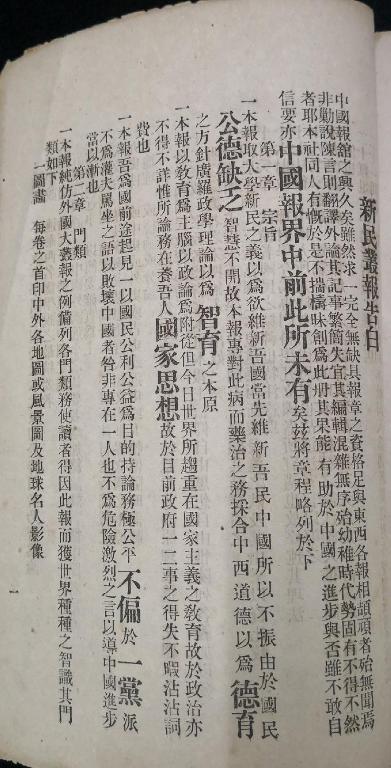 新民叢報告白
中國報館之興久矣雖然求一完全無缺具報章之資格足與東西各報相頡頏者殆無聞焉
非勦說陳言則翻譯外論其記事繁簡失宜其編輯混雜無序殆幼稚時代勢固有不得不然
者耶本社同人有慨於是不揣檮昧創為此冊其果能有助於中國之進步與否雖不敢自
信要亦中國報界中前此所未有矣茲將章程略列於下
第一章 宗旨
一本報取大學新民之義以為欲維新吾國當先維新吾民中國所以不振由於國民
公德缺乏智慧不開故本報專對此病而藥治之務採合中西道德以為德育
之方針廣羅政學理論以為智育之本原
一本報以教育為主腦以政論為附從但今日世界所趨重在國家主義之教育故於政治亦
不得不詳惟所論務在養吾人國家思想故於目前政府一二事之得失不暇沾沾詞
費也
一本報為吾國前途起見一以國民公利公益為目的持論務極公平不偏於一黨派
不為灌夫罵坐之語以敗壞中國者咎非專在一人也不為危險激烈之言以導中國進步
當以漸也
第二章 門類
一本報純仿外國大叢報之例備列各門類務使讀者得因此報而獲世界種種之智識其門
類如下
一圖畫 每卷之首印中外各地圖或風景圖及地球名人影像
一